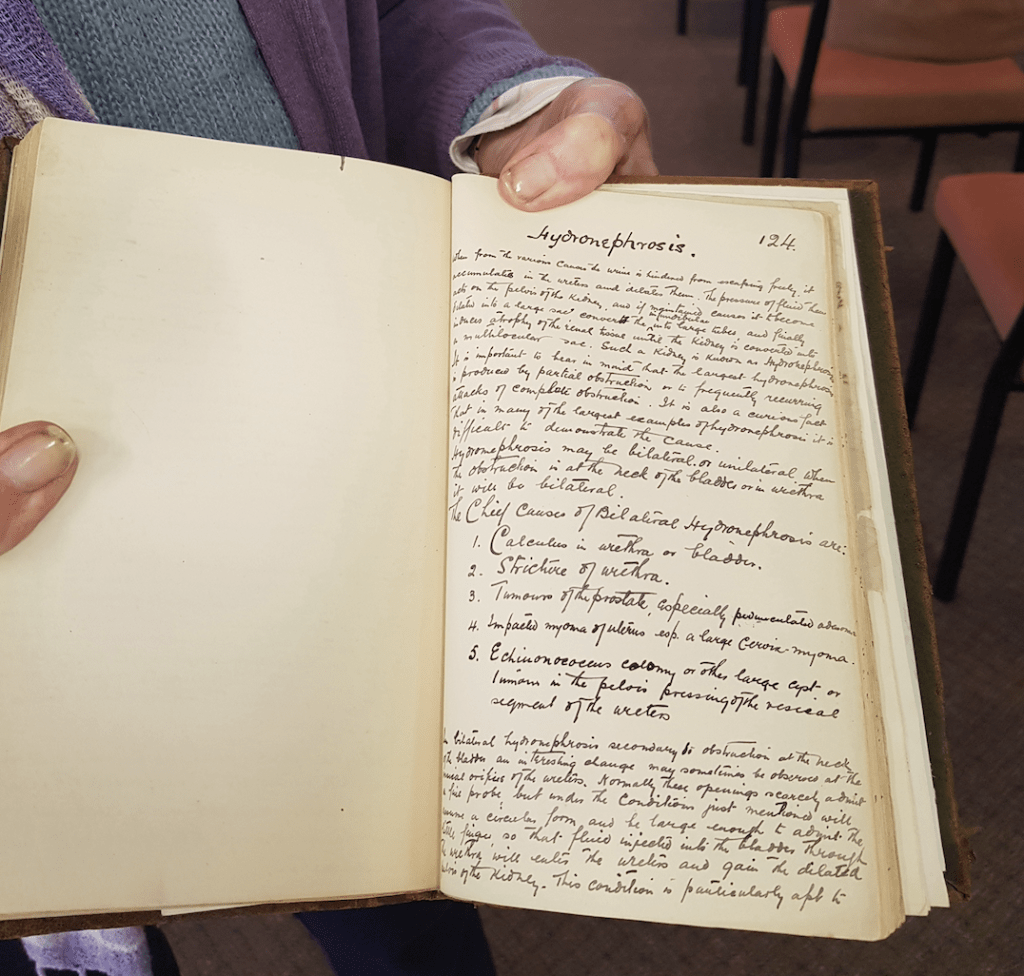 Hydronephrosis. 124.
When from the various causes the urine is hindered from escaping freely, it
accumulates in the ureters and dilates them. The pressure of fluid then
acts on the pelvis of the kidney, and if maintained causes it to become
dilated into a large sac converts the infundibula into large tubes, and finally
induces atrophy of the renal tissue until the kidney is converted into
a multilocular sac. Such a kidney is known as Hydronephrosis
It is important to bear in mind that the largest hydronephrosis
is produced by partial obstruction or to frequently recurring
attacks of complete obstruction. It is also a curious fact
that in many of the largest examples of hydronephrosis it is
difficult to demonstrate the cause.
Hydronephrosis may be bilateral or unilateral. When
the obstruction is at the neck of the bladder or in urethra
it will be bilateral.
The Chief Causes of Bilateral Hydronephrosis are:
1. Calculus in urethra or bladder.
2. Stricture of urethra.
3. Tumours of the prostate, especially pedunculated adenoma
4. Impacted myoma of uterus esp. a large Cervix-myoma.
5. Echinonococcus colony or other large cyst or
tumour in the pelvis pressing of the vesical
segment of the ureters
In bilateral hydronephrosis secondary to obstruction at the neck
of the bladder an interesting change may sometimes be observed at the
orifices of the ureters. Normally these openings scarcely admit
a fine probe but under the conditions just mentioned will
assume a circular form, and be large enough to admit the
little finger, so that fluid injected into the bladder through
the urethra will enter the ureters and gain the dilated
pelvis of the kidney. This condition is particularly apt to